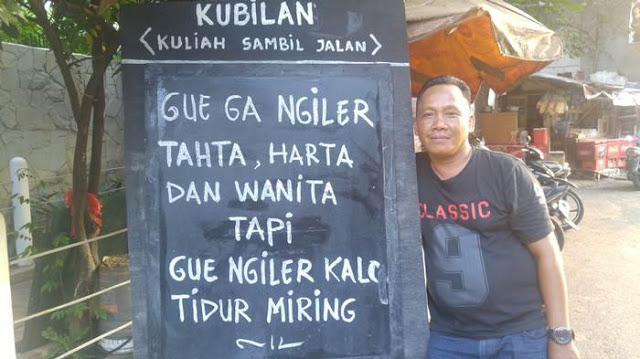 KUBILAN
<KULIAH SAMBIL JALAN>
GUE GA NGILER
TAHTA, HARTA
DAN WANITA
TAPI
GUE NGILER KALO
TIDUR MIRING
CLASSIC
9